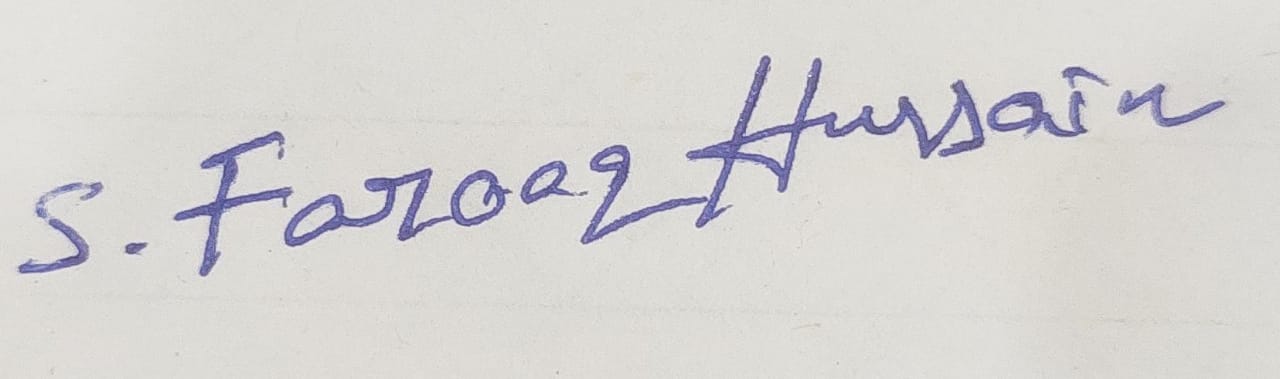 S. Farooq Hussain